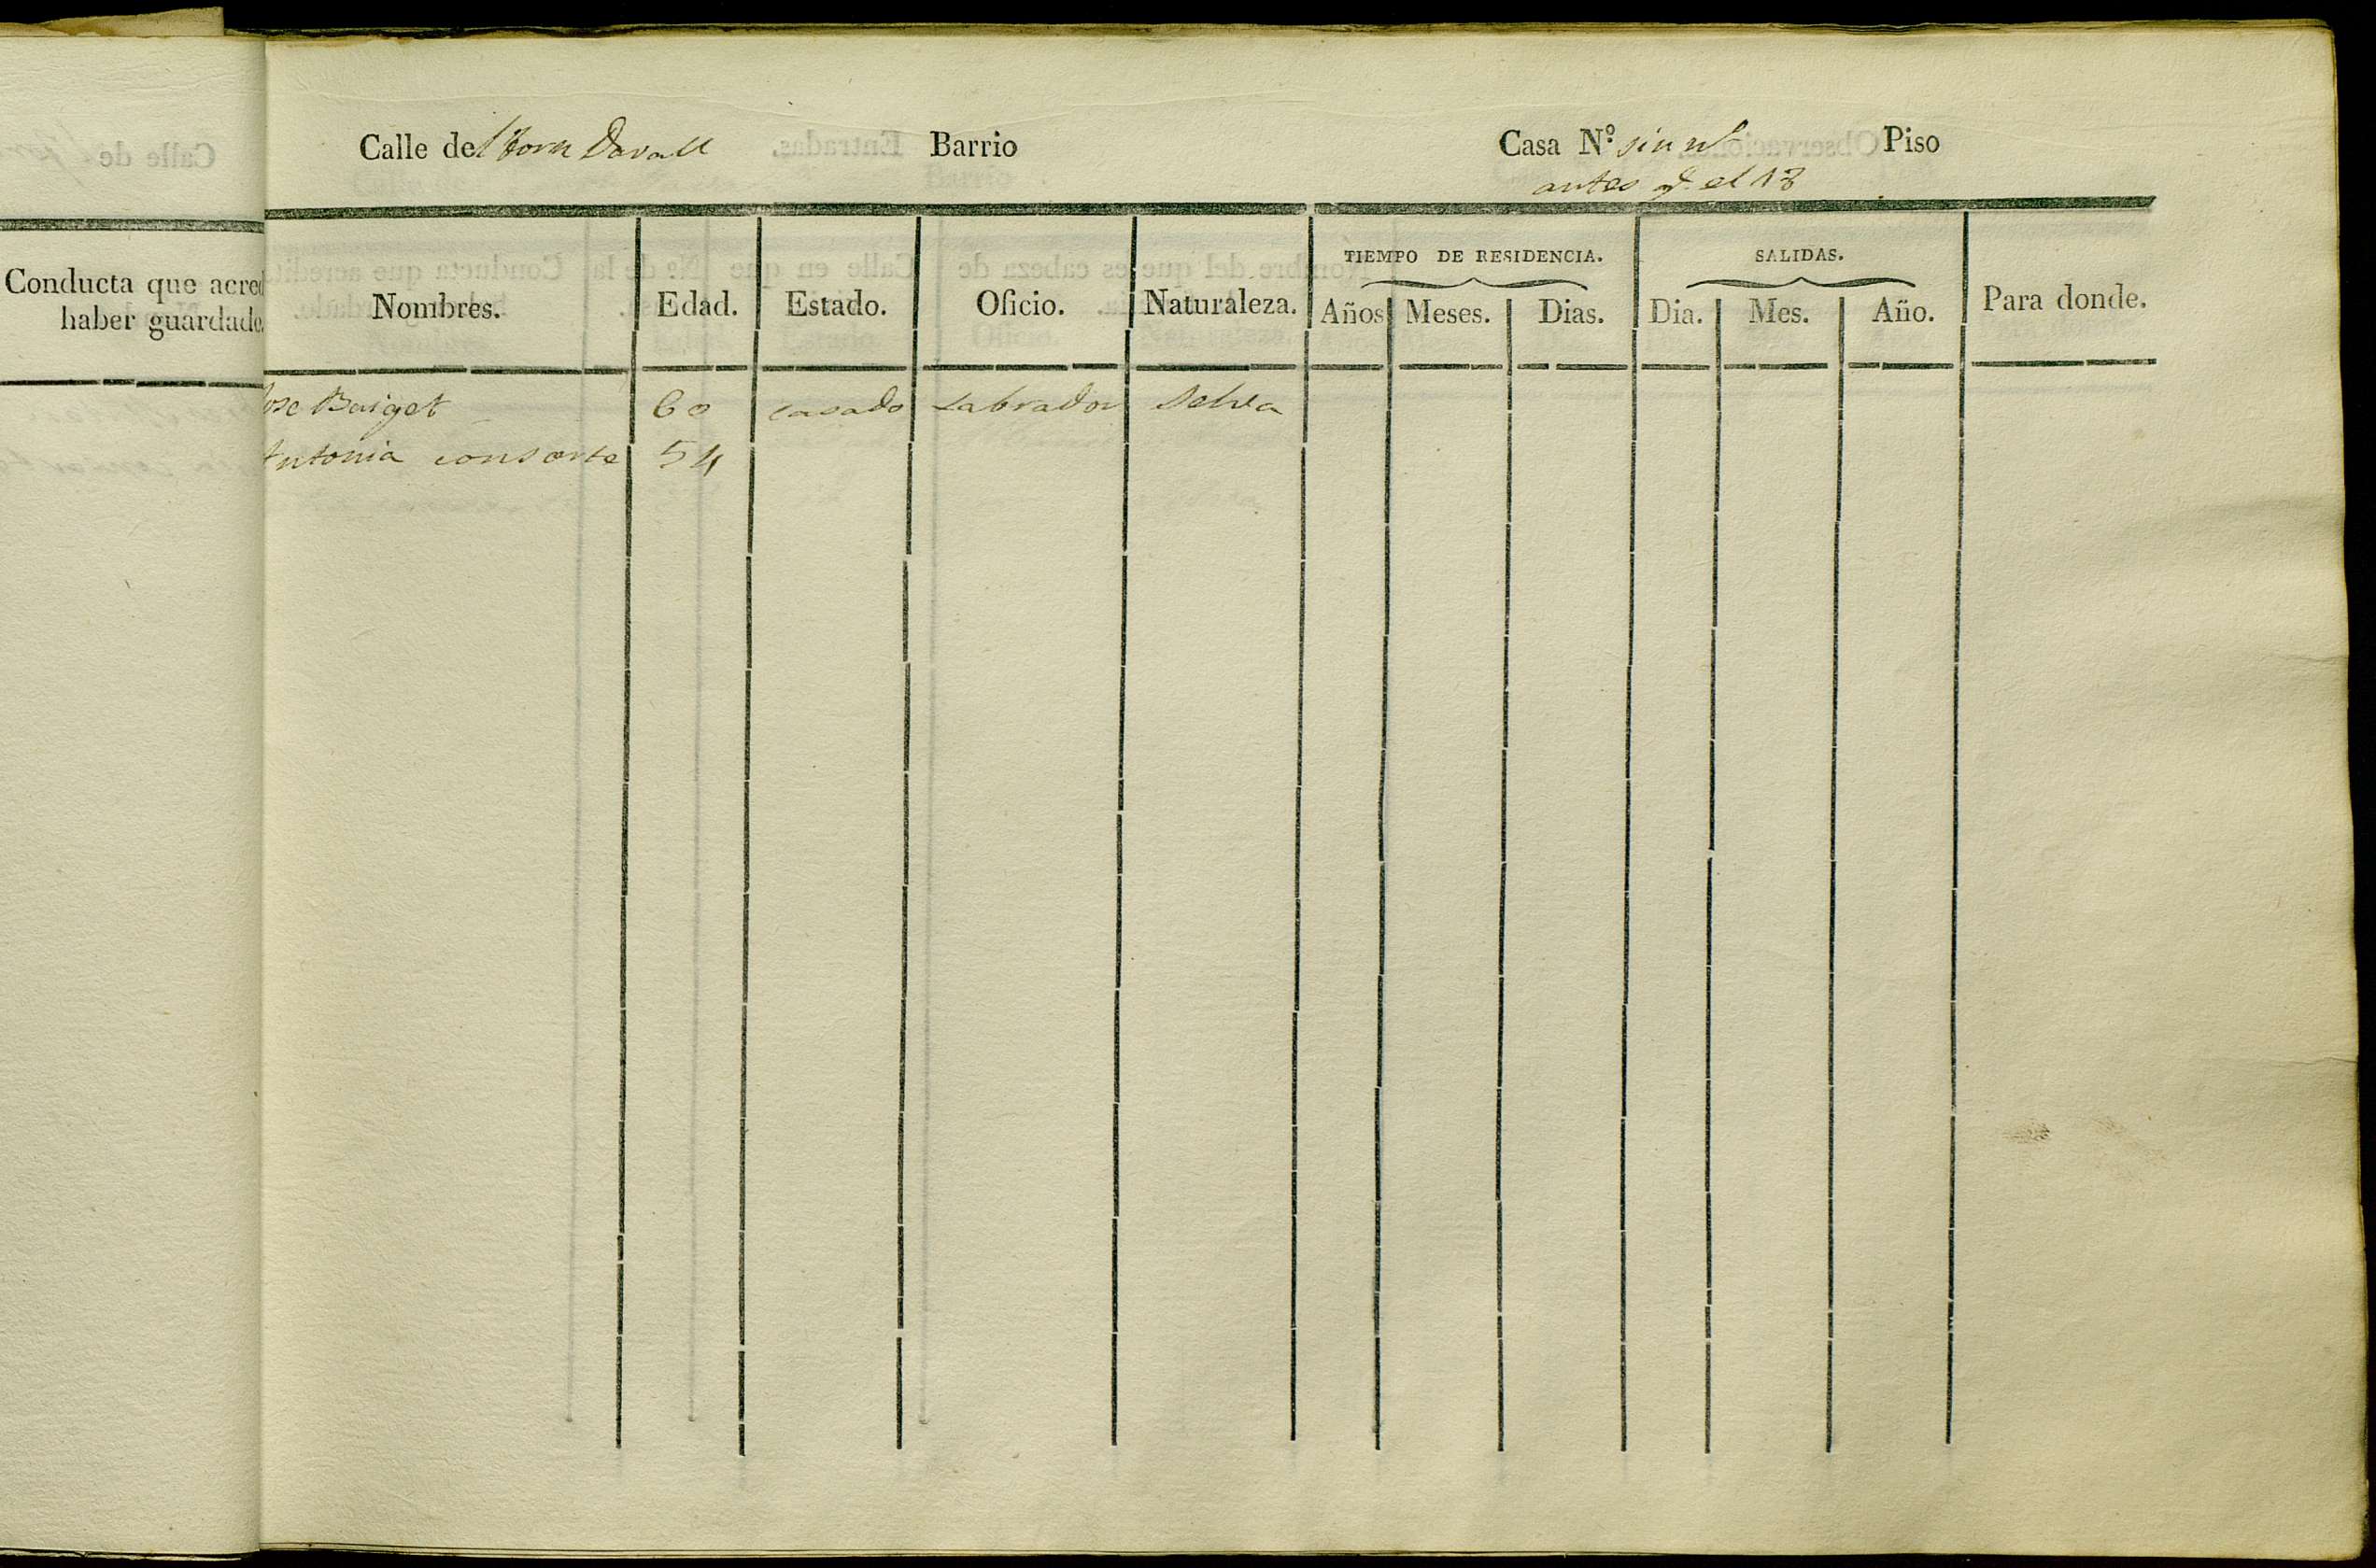 Conducta que acred
haber guardado.
Calle del Forn Davall Barrio Casa N.º sin nº Piso
antes q. el 13
Nombres. Edad. Estado. Oficio. Naturaleza. TIEMPO DE RESIDENCIA. Años Meses. Dias. SALIDAS. Dia. Mes. Año. Para donde.
Jose Baiget 60 casado Labrador Selva
Antonia consorte 54